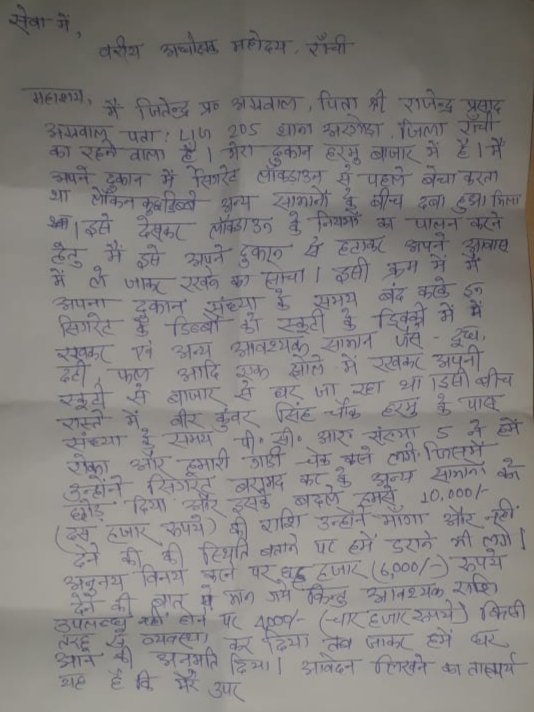 सेवा में,
वरीय महोदय, राँची
महाशय,
मैं जितेन्द्र प्र० अग्रवाल, पिता श्री राजेन्द्र प्रसाद
अग्रवाल पता: LIG 205 थाना अरगोड़ा, जिला राँची
का रहने वाला हूँ। मेरा दुकान हरमु बाजार में है। मैं
अपने दुकान में सिगरेट लॉकडाउन से पहले बेचा करता
था लेकिन कुछ डिब्बे अन्य सामानों के बीच दबा हुआ मिला
इसे देखकर लॉकडाउन के नियमों का पालन करने
हेतु मैं इसे अपने दुकान से हटाकर अपने आवास
में ले जाकर रखने का सोचा। इसी क्रम में मैं
अपना दुकान संध्या के समय बंद करके इन
सिगरेट के डिब्बों को स्कूटी के डिक्की में
रखकर एवं अन्य आवश्यक सामान जैसे - दूध,
दही फल आदि एक झोले में रखकर अपनी
स्कूटी से बाजार से घर जा रहा था। इसी बीच
रास्ते में वीर कुंवर सिंह चौक हरमु के पास
संध्या के समय पी. सी. आर. संख्या 5 ने हमें
रोका और हमारी गाडी चेक करने लगे जिसमें
उन्होंने सिगरेट बरामद कर के अन्य सामान को
छोड़ दिया और इसके बदले हमसे 10,000/-
(दस हजार रूपये) की राशि उन्होंने माँगा और नहीं
देने की की स्थिति बताने पर हमें डराने भी लगे।
अनुनय विनय करने पर छह हजार (6,000/-) रूपये
देने की बात में मान गये किन्तु आवश्यक राशि
उपलब्ध नहीं होने पर 4000/- (चार हजार रूपये) किसी
तरह से व्यवस्था कर दिया तब जाकर हमें घर
आने की अनुमति दिया। आवेदन लिखने का तात्पर्य
यह है कि मेरे उपर